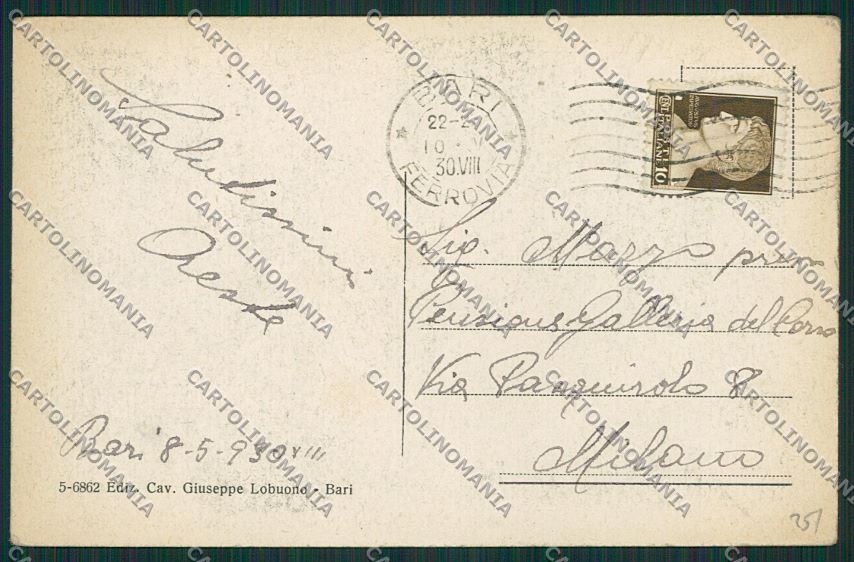 Salutissimi
Oreste
Bari 8-5-930 VIII
5-6862 Ediz. Cav. Giuseppe Lobuono - Bari
BARI
22-2
10
30.VIII
FERROVIA
POSTE
ITALIANE 10
Sig. Mazzo
Pensione Galleria del Corso
Via Pasquirolo 8
Milano
251
CARTOLINOMANIA